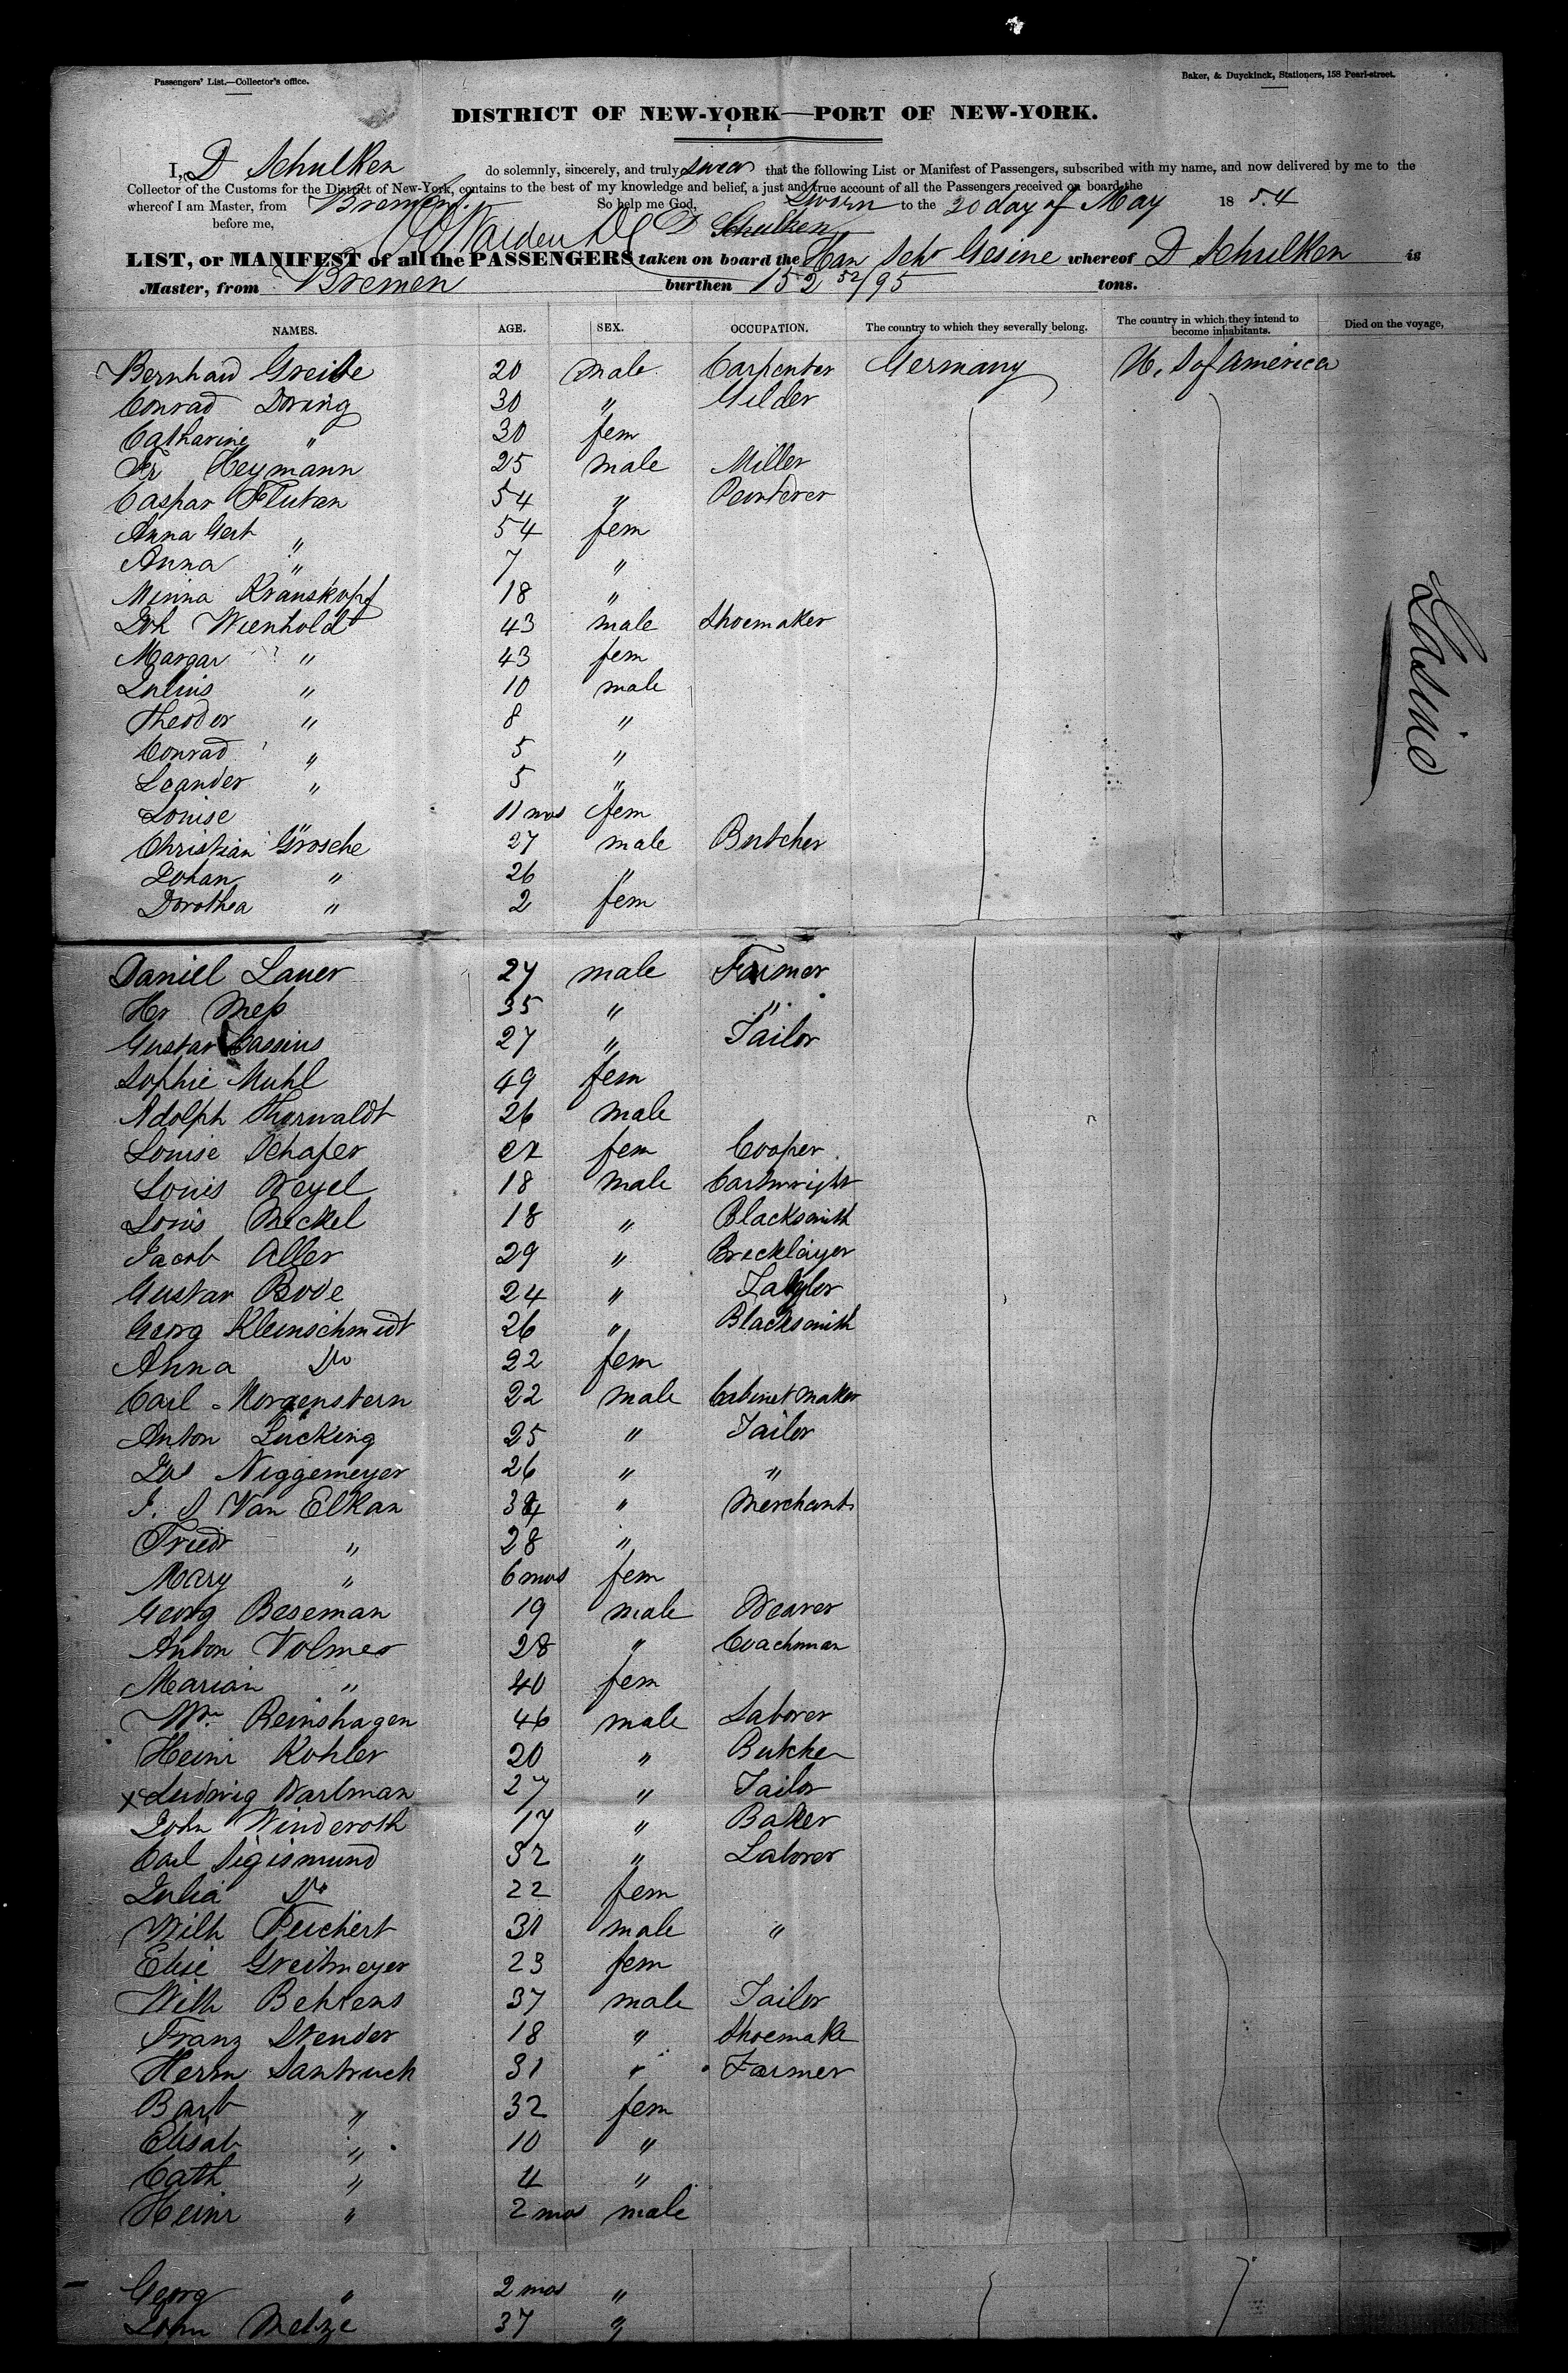 Passengers' List.—Collector's office.
Baker, & Duyckinck, Stationers, 158 Pearl-street.
DISTRICT OF NEW-YORK—PORT OF NEW-YORK.
I, D Schulken do solemnly, sincerely, and truly swear that the following List or Manifest of Passengers, subscribed with my name, and now delivered by me to the
Collector of the Customs for the District of New-York, contains to the best of my knowledge and belief, a just and true account of all the Passengers received on board the
whereof I am Master, from Bremen. So help me God, Sworn to the 20 day of May 1854
before me, D Schulken
LIST, or MANIFEST of all the PASSENGERS taken on board the Han Schr Gesine whereof D Schulken is
Master, from Bremen burthen 152 52/95 tons.
NAMES. AGE. SEX. OCCUPATION. The country to which they severally belong. The country in which they intend to become inhabitants. Died on the voyage,
Bernhard Greibe 20 male Carpenter Germany U. S of America
Conrad Doring 30 " Gilder
Catharine " 30 fem
Fr Heymann 25 male Miller
Caspar Flutan 54 "
Anna Gert " 54 fem
Anna " 7 "
Minna Kranskopf 18 "
Joh Wienhold 43 male Shoemaker
Margar " 43 fem
Julius " 10 male
Theodor " 8 "
Conrad " 5 "
Leander " 5 "
Louise " 11 mos fem
Christian Grosche 27 male Butcher
Johan " 26 "
Dorothea " 2 fem
Gesine
Daniel Lauer 27 male Farmer
Hr Meß 35 " "
Gustav Cassius 27 " Tailor
Sophie Muhl 49 fem
Adolph Thorwaldt 26 male
Louise Schafer 22 fem Cooper
Louis Weyel 18 male Cartwright
Louis Meckel 18 " Blacksmith
Jacob Aller 29 " Brecklayer
Gustav Bode 24 " Taylor
Georg Kleinschmidt 26 " Blacksmith
Anna Do 22 fem
Carl Morgenstern 22 male Cabinet maker
Anton Lücking 25 " Tailor
Jos Niggemeyer 26 " "
J. S Van Elkan 34 " Merchant
Friedr " 28 "
Mary " 6 mos fem
Georg Beseman 19 male Weaver
Anton Volmer 28 " Coachman
Marian " 40 fem
Wm Reinshagen 46 male Laborer
Heinr Kohler 20 " Butcher
x Ludwig Warlman 27 " Tailor
John Winderoth 17 " Baker
Carl Sigismund 32 " Laborer
Julia Do 22 fem
Wilh Peichert 31 male "
Elise Greitmeyer 23 fem
Wilh Behrens 37 male Tailor
Franz Stender 18 " Shoemake
Herm Santruck 31 " Farmer
Barb " 32 fem
Elisab " 10 "
Cath " 4 "
Heinr " 2 mos male
Georg " 2 mos "
John Metze 37 "